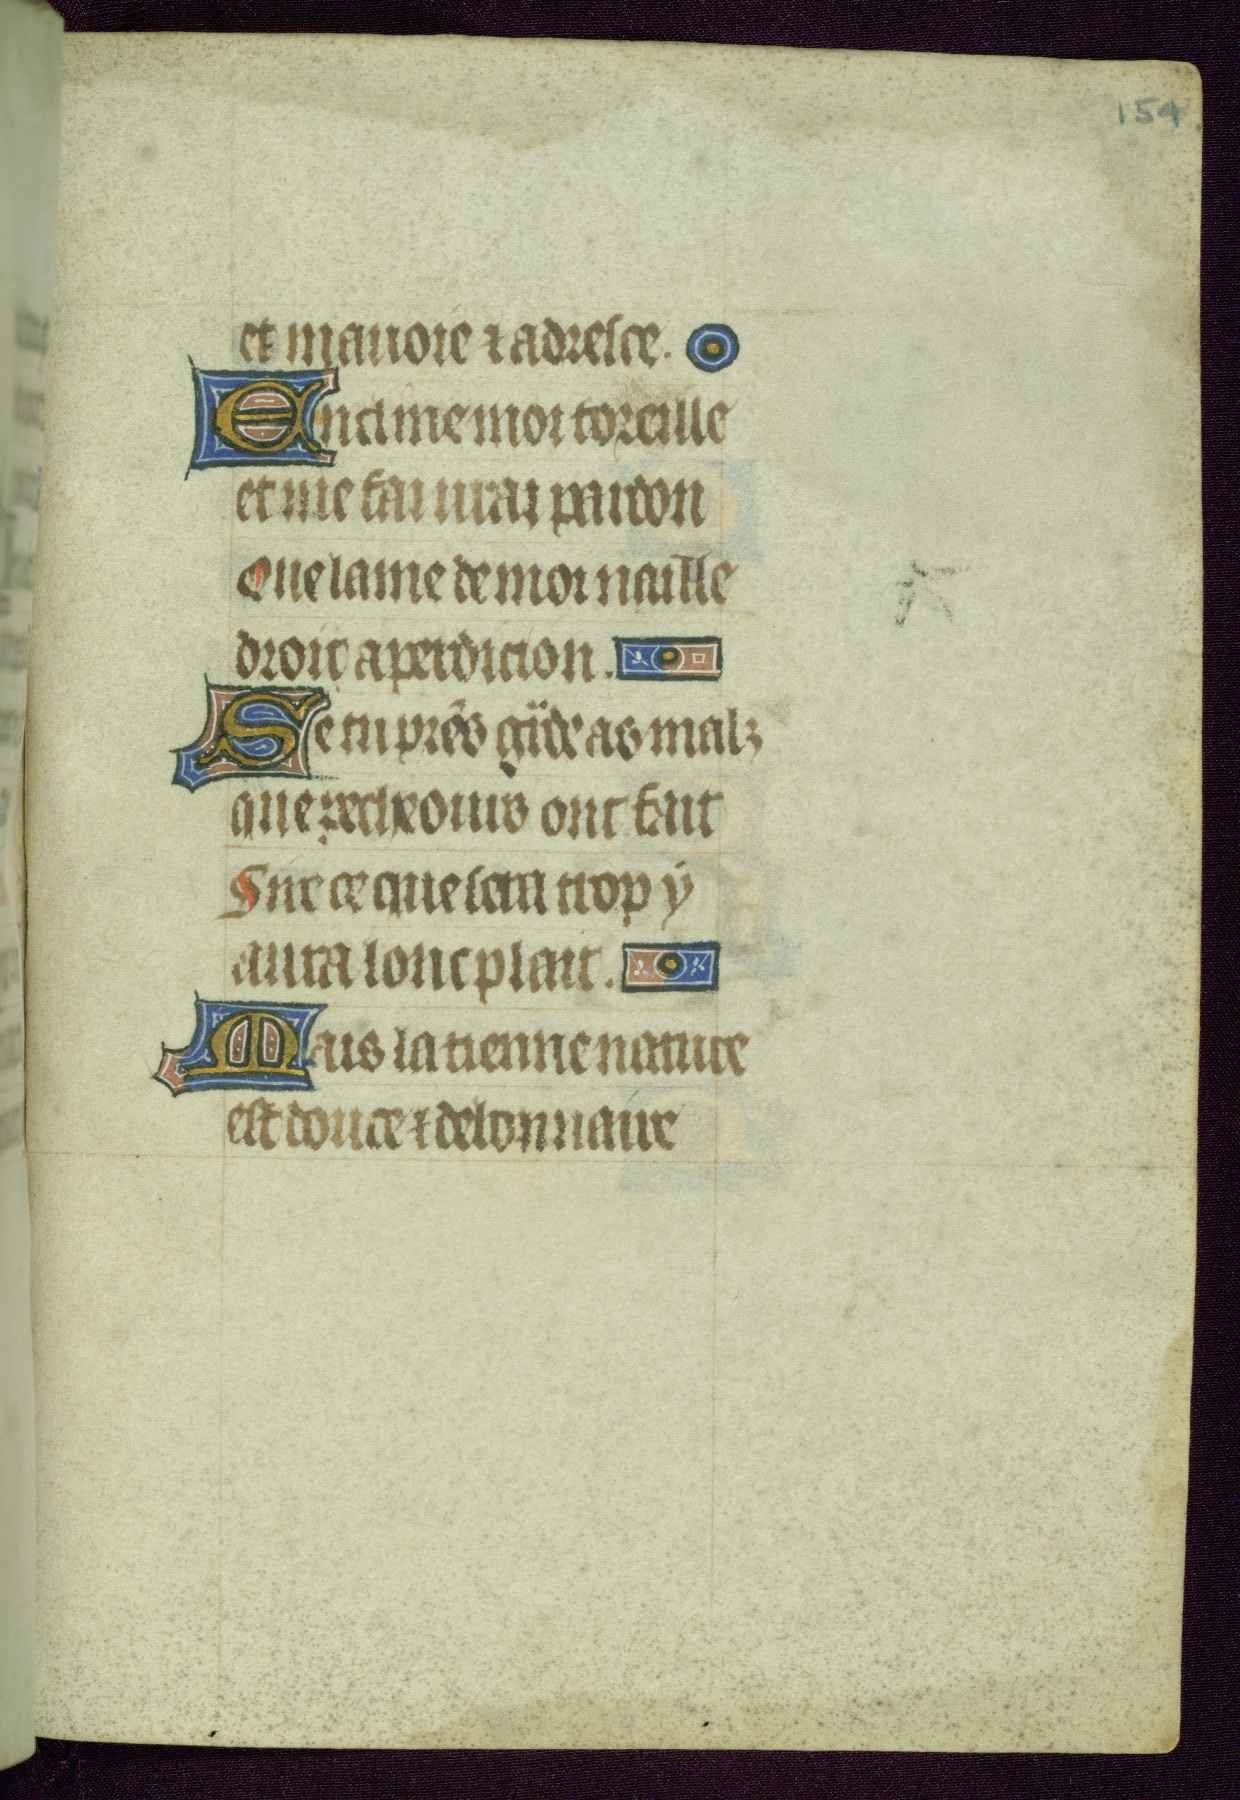 154
et mauoie ⁊ adresce.
Encline moi toreille
et me fai urai pardon
Que lame de moi naille
droit a perdicion.
Se tu prēs gͥde as malz
que pecheours ont fait
Sire ce que sera trop ẏ
aura lonc plait.
Mais la tienne nature
est douce ⁊ debonnaire